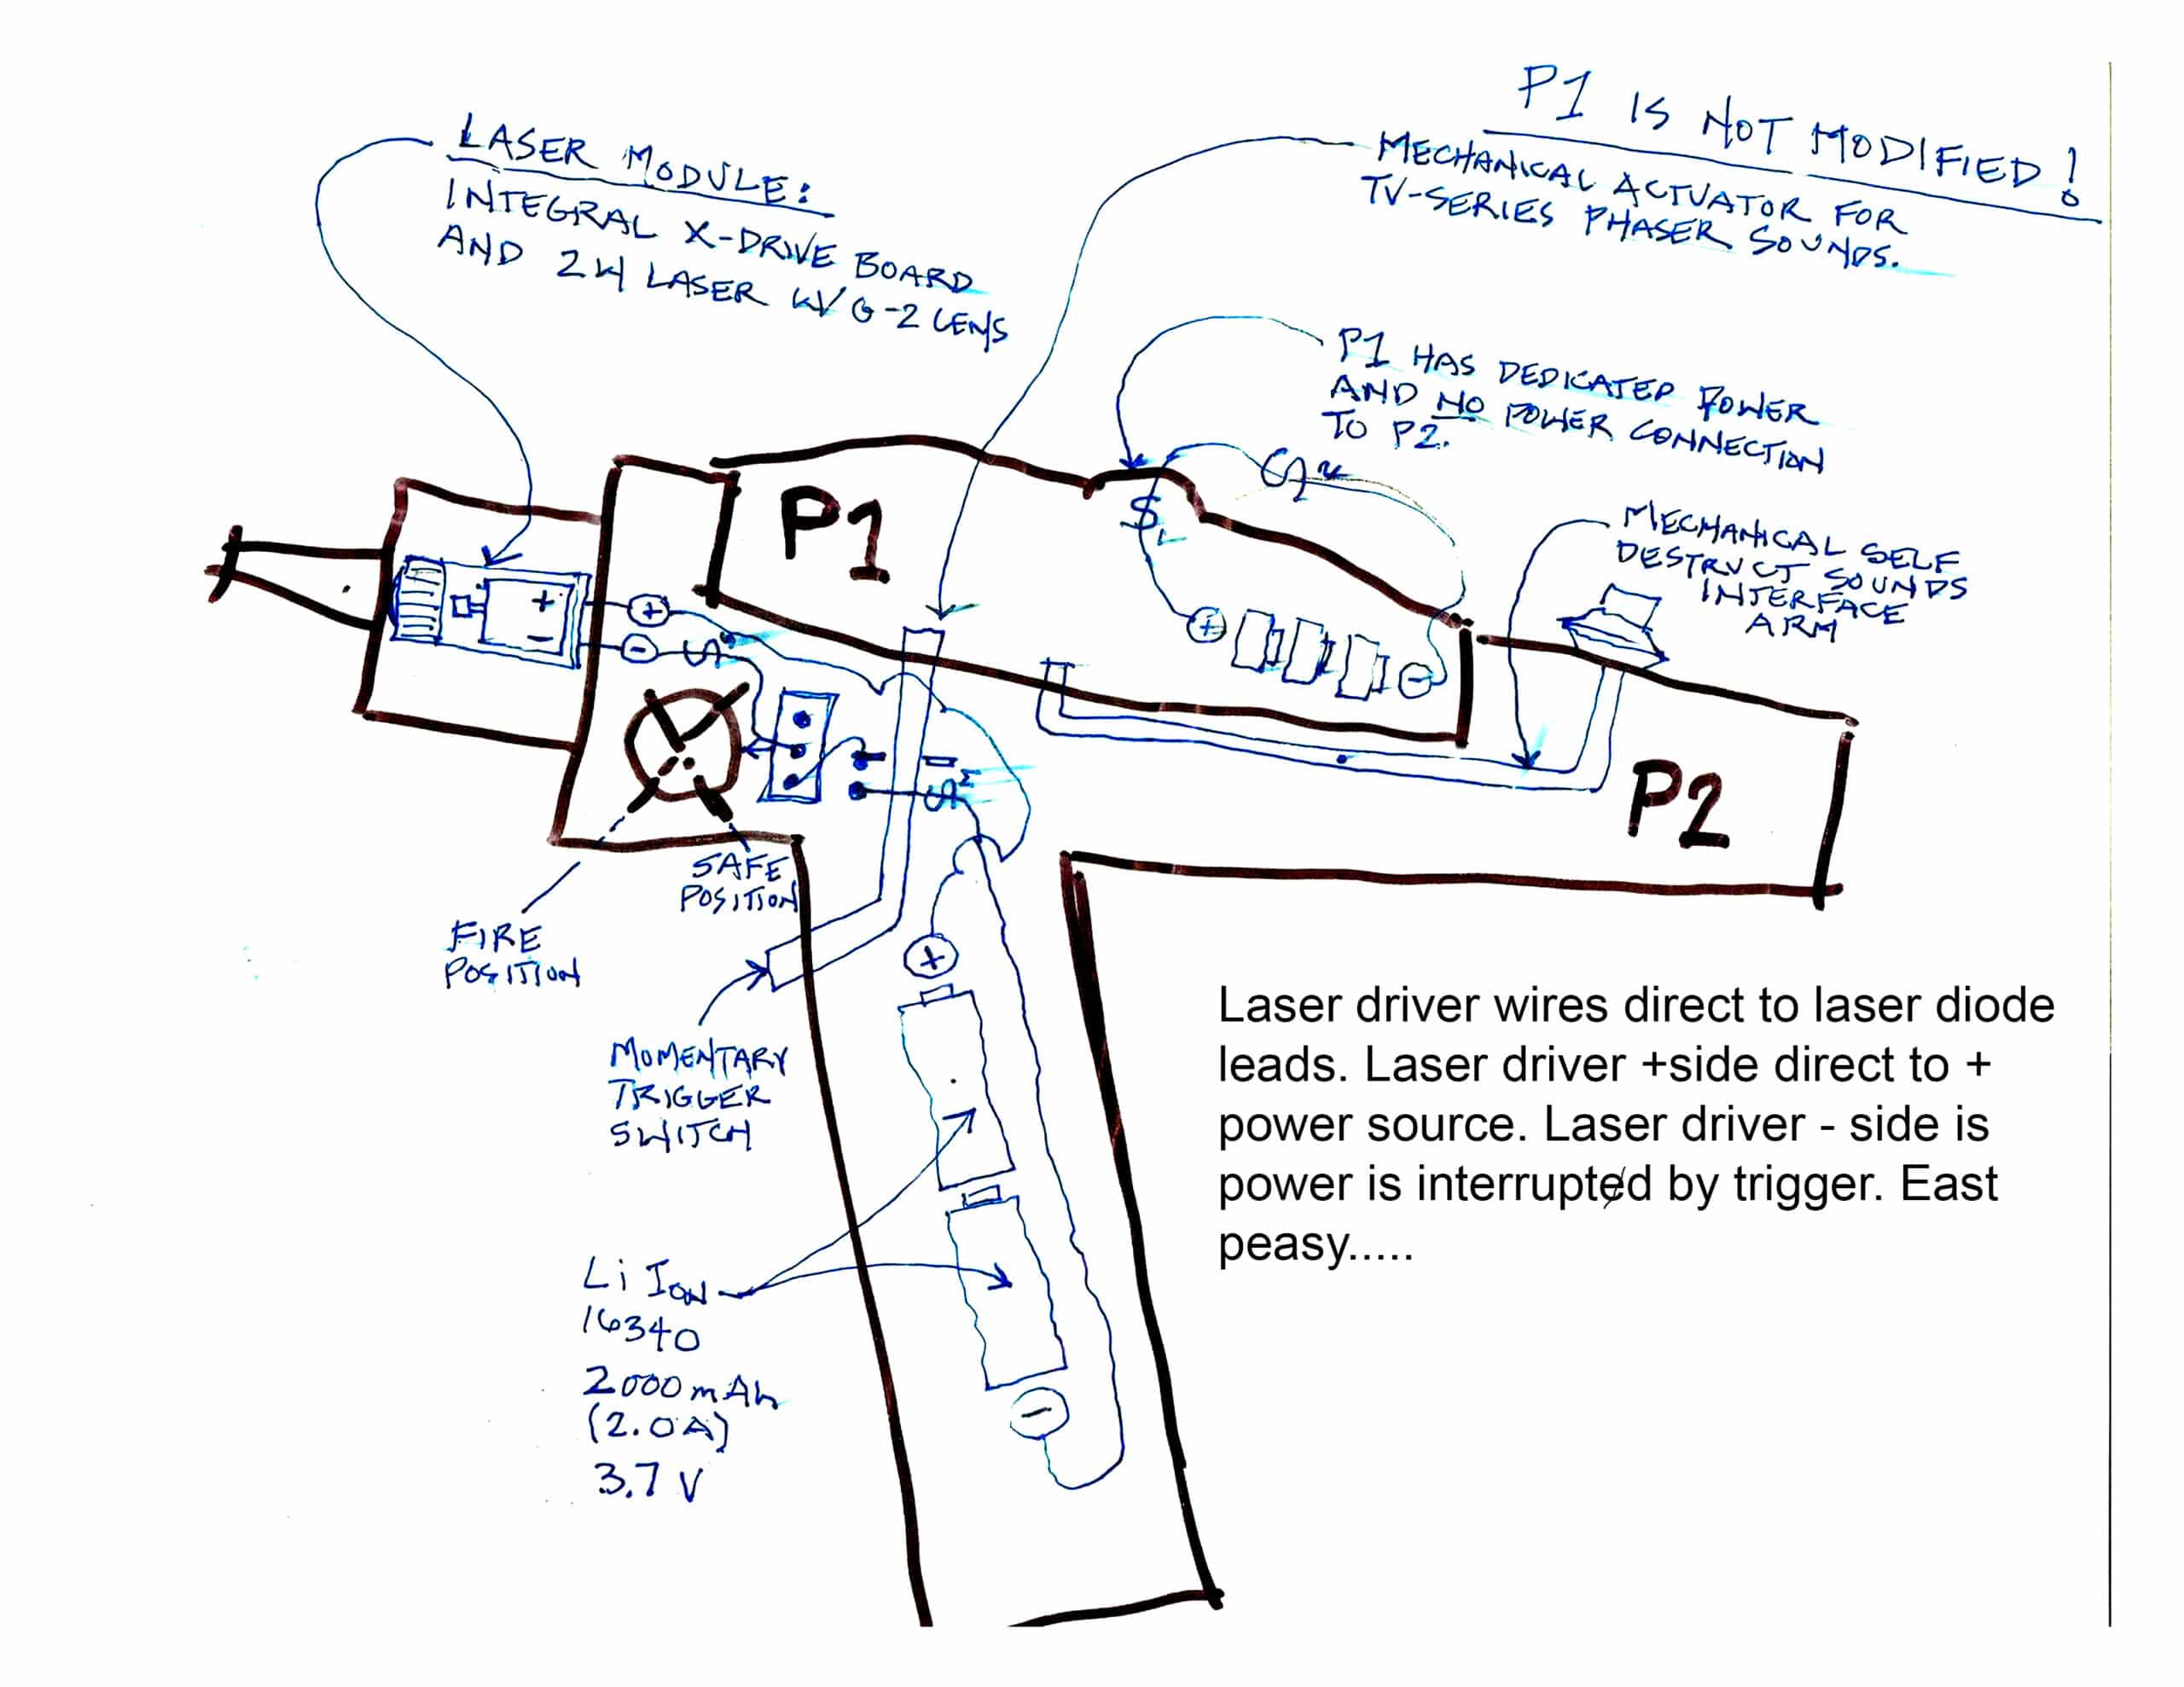 P1 IS NOT MODIFIED!
LASER MODULE:
INTEGRAL X-DRIVE BOARD
AND 2W LASER W/ G-2 LENS
MECHANICAL ACTUATOR FOR
TV-SERIES PHASER SOUNDS.
P1 HAS DEDICATED POWER
AND NO POWER CONNECTION
TO P2.
MECHANICAL SELF
DESTRUCT SOUNDS
INTERFACE
ARM
P1
+
-
+
-
+
-
P2
SAFE
POSITION
FIRE
POSITION
MOMENTARY
TRIGGER
SWITCH
+
-
Li ION
16340
2000mAh
(2.0A)
3.7V
Laser driver wires direct to laser diode
leads. Laser driver +side direct to +
power source. Laser driver - side is
power is interrupted by trigger. East
peasy.....